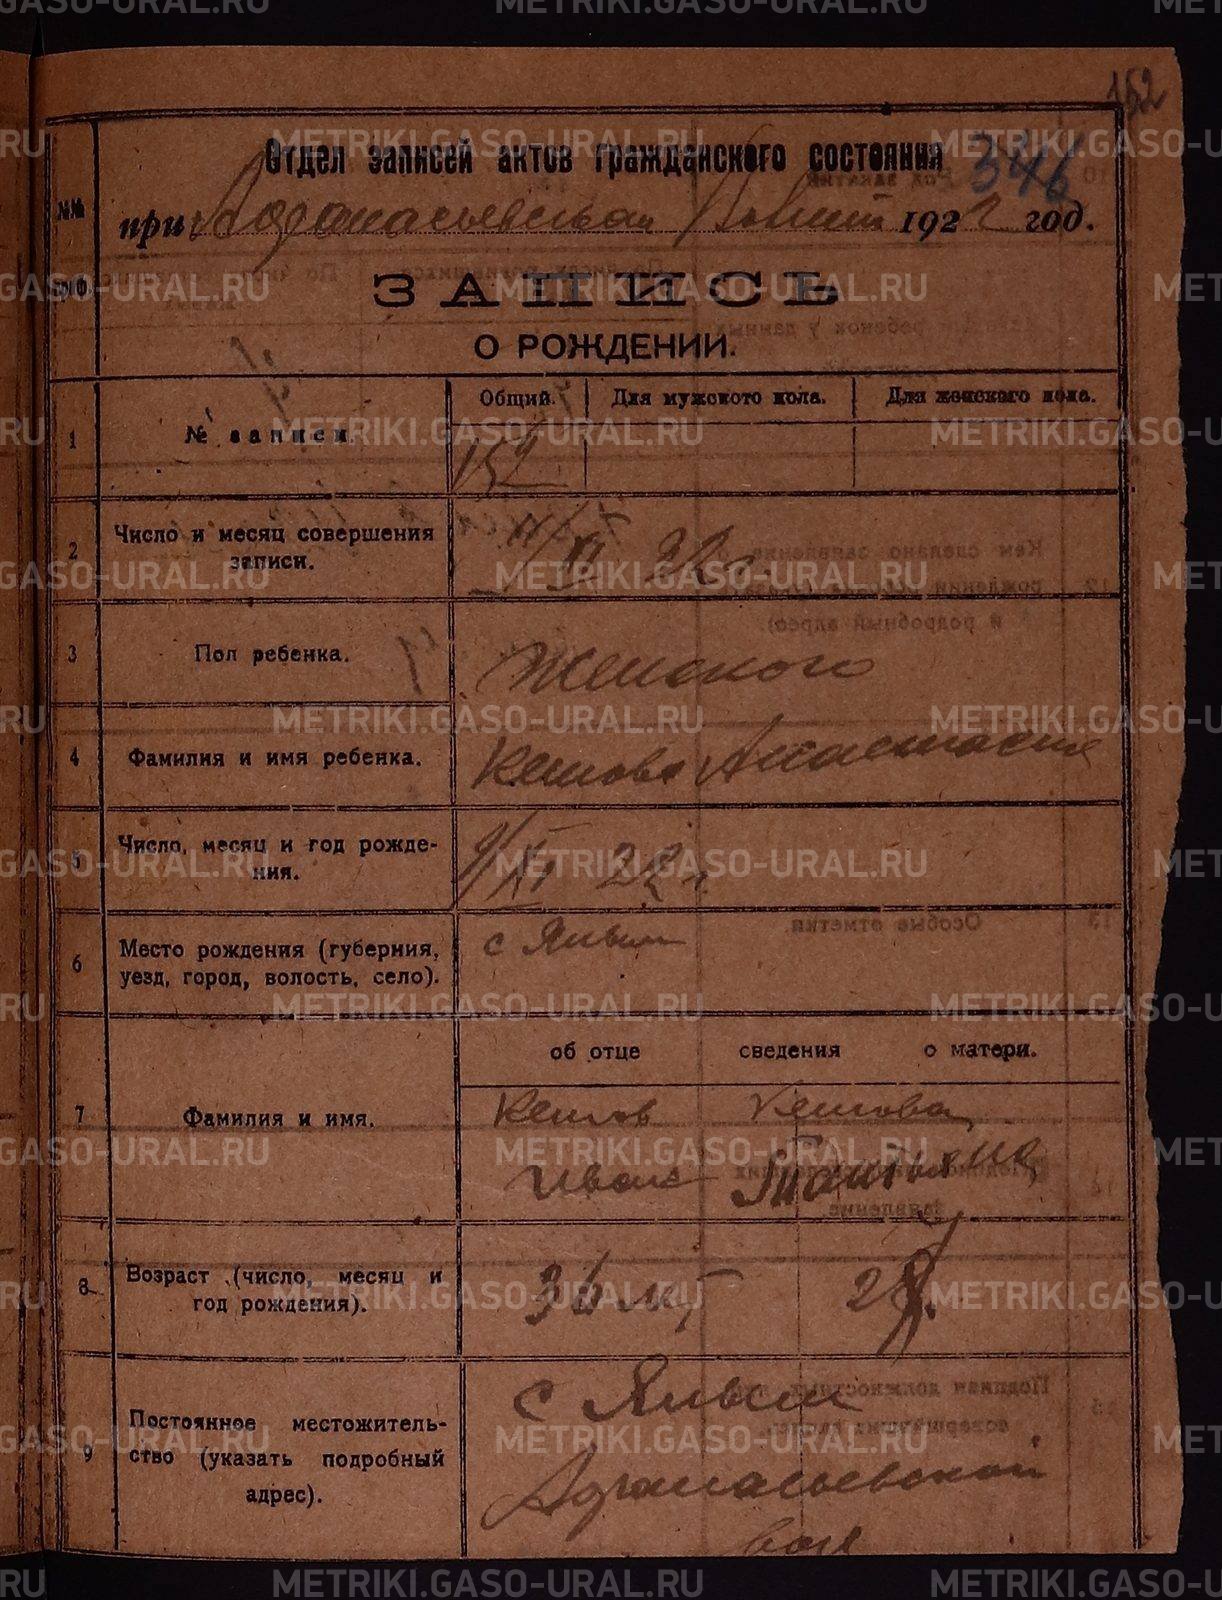 152
Отдел записей актов гражданского состояния
346
№№
при Афанасьевской 1922 год.
граф.
ЗАПИСЬ
О РОЖДЕНИИ.
Общий. Для мужского пола. Для женского пола.
1 № записи. 152
2 Число и месяц совершения записи. 11/XI 22 г.
3 Пол ребенка. Женского
4 Фамилия и имя ребенка. Анастасия
5 Число, месяц и год рождения. 9/XI 22 г.
6 Место рождения (губерния, уезд, город, волость, село). с Ялым
об отце сведения о матери.
7 Фамилия и имя.
Иван Татьяна
8 Возраст (число, месяц и год рождения). 36 лет 28
9 Постоянное местожительство (указать подробный адрес). с Ялым
Афанасьевской
вол
METRIKI.GASO-URAL.RU